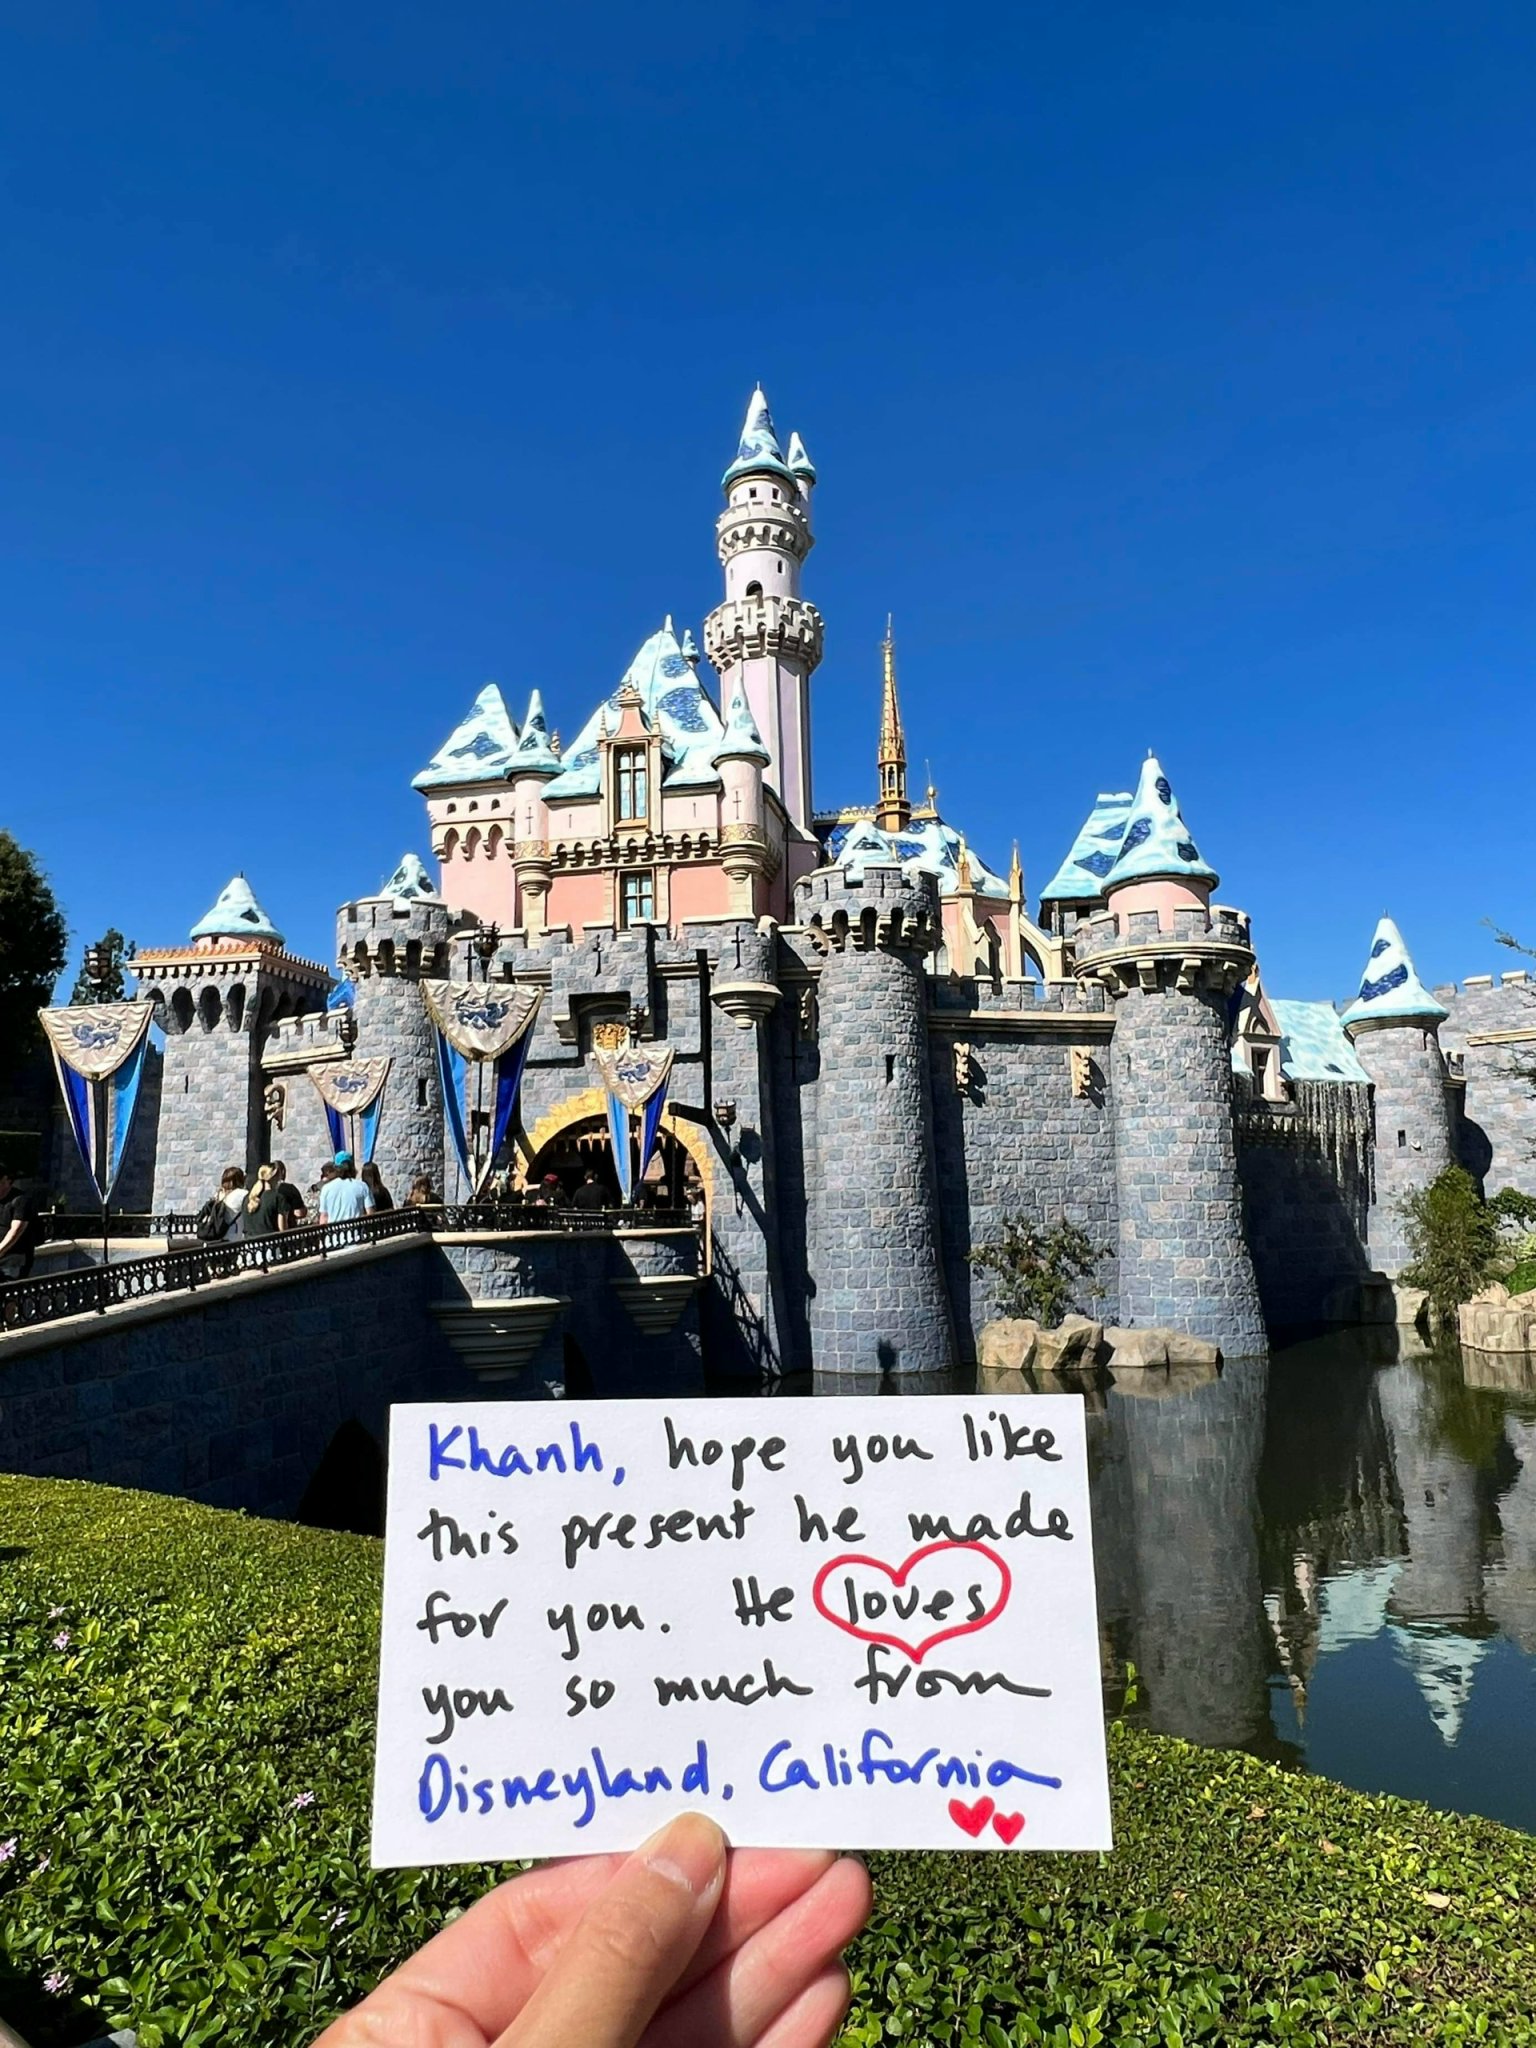 Khanh, hope you like
this present he made
for you. He loves
you so much from
Disneyland, California